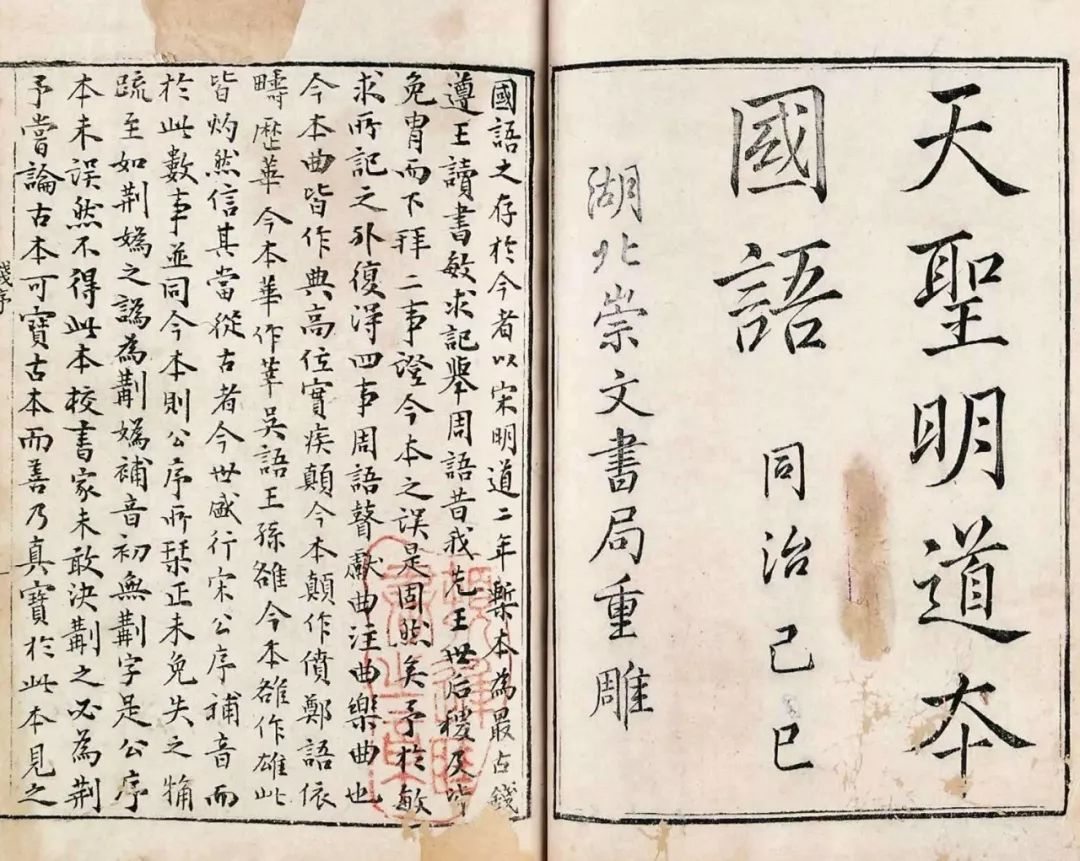 天聖明道本
國語 同治己巳
湖北崇文書局重雕
國語之存於今者以宋明道二年槧本為最古錢
遵王讀書敏求記舉周語昔我先王世后稷及皆
免冑而下拜二事證今本之誤是固然矣予於敏
求所記之外復得四事周語瞽獻曲注曲樂曲也
今本曲皆作典高位實疾顛今本顛作僨鄭語依
疇歷華今本華作莘吳語王孫雒今本雒作雄此
皆灼然信其當從古者今世盛行宋公序補音而
於此數事並同今本則公序所栞正未免失之觕
疏至如荆嬀之譌為蒯嬀補音初無蒯字是公序
本未誤然不得此本校書家未敢決蒯之必為荆
予嘗論古本可寶古本而善乃真寶於此本見之
錢序